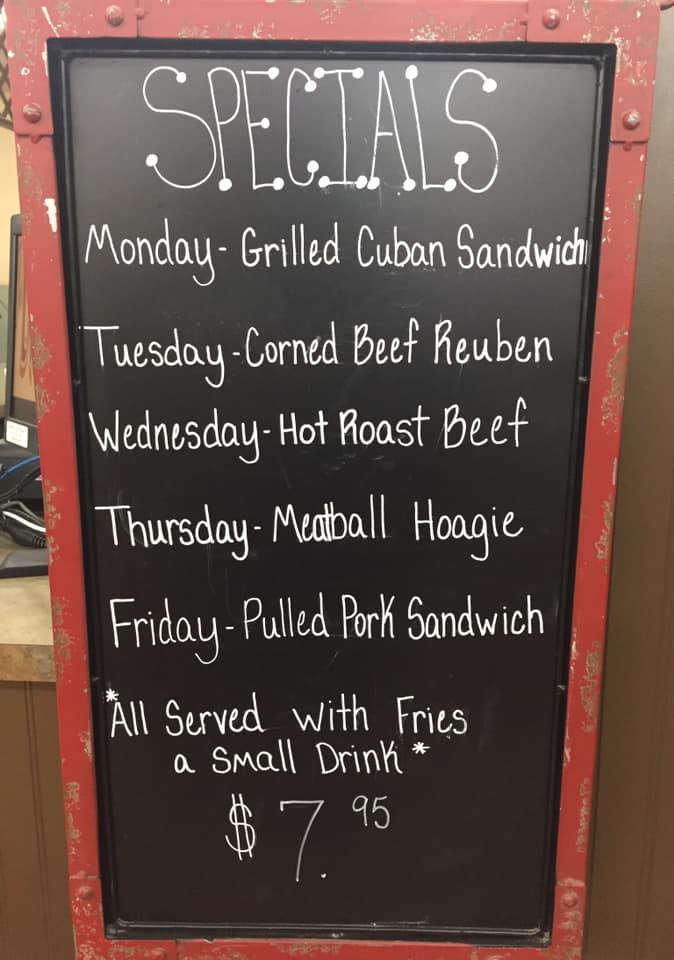 SPECIALS
Monday - Grilled Cuban Sandwich
Tuesday - Corned Beef Reuben
Wednesday - Hot Roast Beef
Thursday - Meatball Hoagie
Friday - Pulled Pork Sandwich
*All Served with Fries
a Small Drink*
$7.95